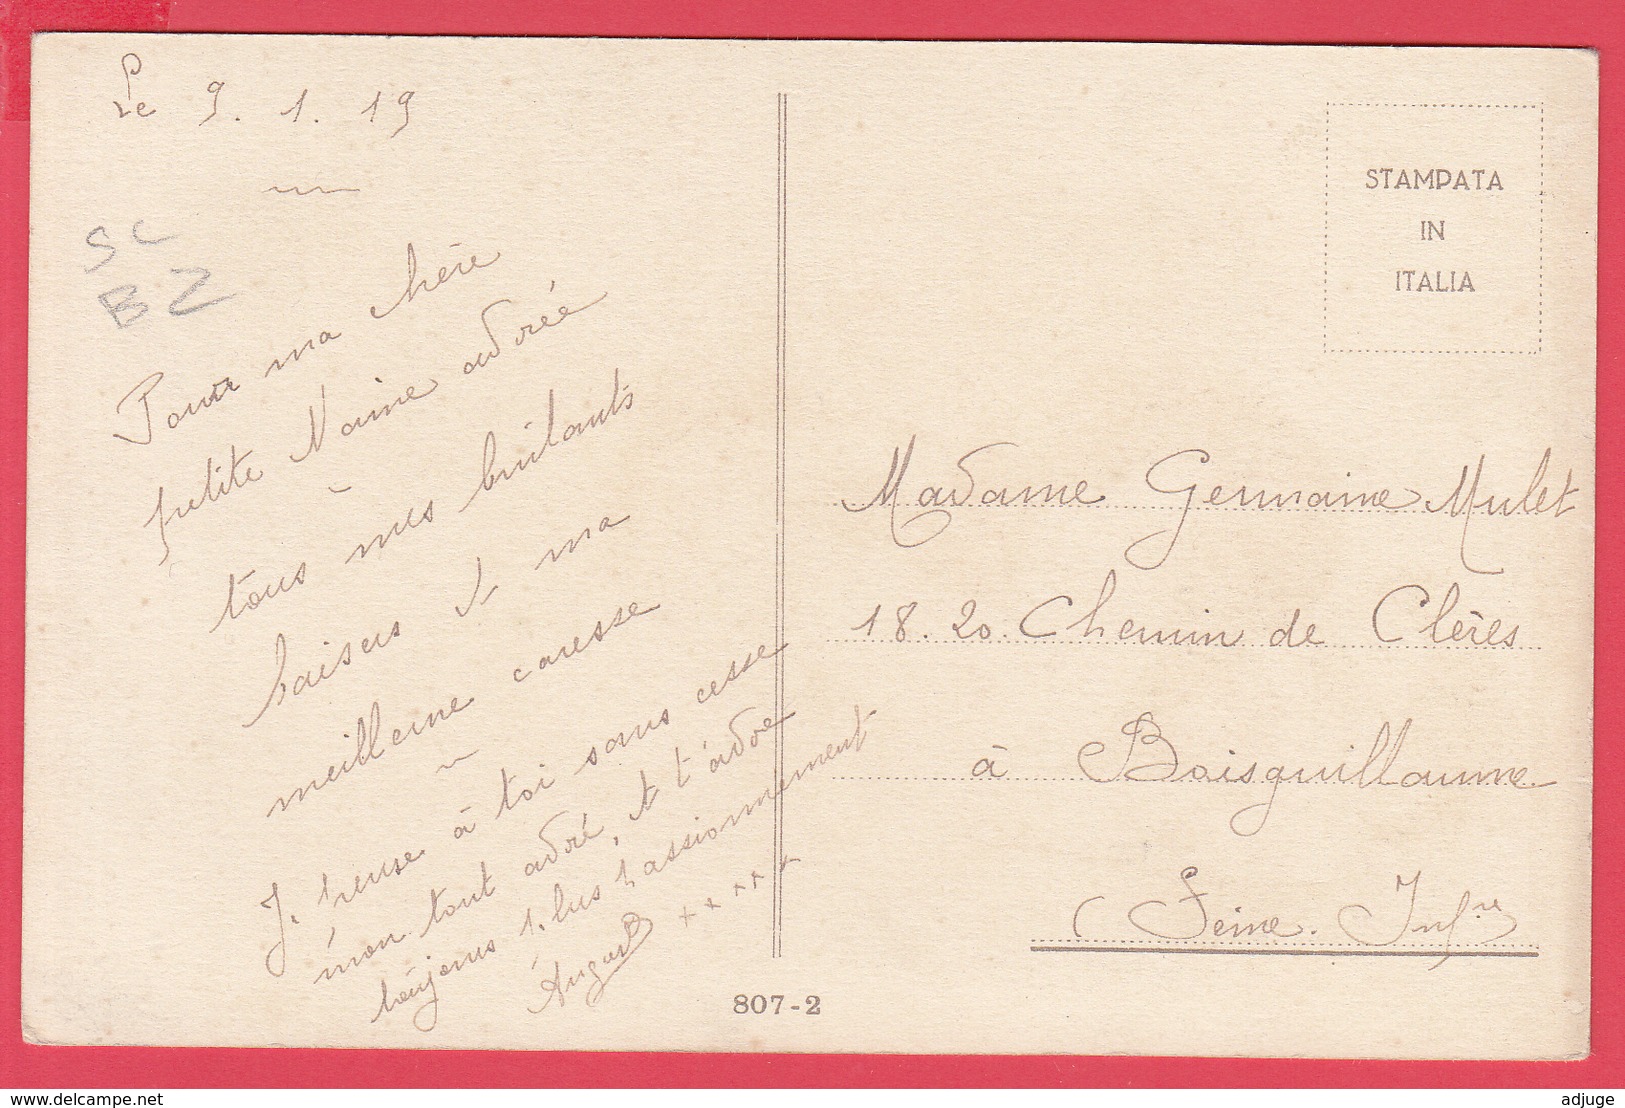 Le 9.1.19
SC
B2
Pour ma chère
petite Naine adorée
tous mes brûlants
baisers et ma
meilleure caresse
Je pense à toi sans cesse
mon tout adoré, et t'adore
toujours plus passionnement
STAMPATA
IN
ITALIA
Madame Germaine Mulet
18.20. Chemin de Clères
à Boisguillaume
(Seine. Infre)
807-2
www.delcampe.net
adjuge